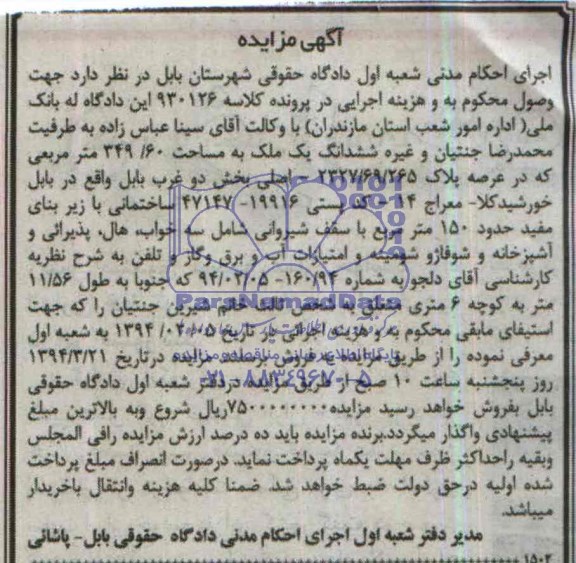 آگهی مزایده
اجرای احکام مدنی شعبه اول دادگاه حقوقی شهرستان بابل در نظر دارد جهت
وصول محکوم به و هزینه اجرایی در پرونده کلاسه ۹۳۰۱۲۶ این دادگاه له بانک
ملی( اداره امور شعب استان مازندران) با وکالت آقای سینا عباس زاده به طرفیت
محمدرضا جنتیان و غیره ششدانگ یک ملک به مساحت ۶۰/ ۳۴۹ متر مربعی
که در عرصه پلاک ۲۳۲۷/۶۹/۲۶۵ - اصلی بخش دو غرب بابل واقع در بابل
خورشیدکلا- معراج ۱۴ - کد پستی ۱۹۹۱۶- ۴۷۱۴۷ ساختمانی با زیر بنای
مفید حدود ۱۵۰ متر مربع با سقف شیروانی شامل سه خواب، هال، پذیرائی و
آشپزخانه و شوفاژو شومینه و امتیازات آب و برق وگاز و تلفن به شرح نظریه
کارشناسی آقای دلجو به شماره ۱۶۰/۹۴- ۹۴/۰۲/۰۵ که جنوبا به طول ۱۱/۵۶
متر به کوچه ۶ متری متعلق به شخص ثالث خانم شیرین جنتیان را که جهت
استیفای مابقی محکوم به و هزینه اجرائی در تاریخ ۰۲/۰۵/ ۱۳۹۴ به شعبه اول
معرفی نموده را از طریق مزایده به فروش برساند. مزایده درتاریخ ۱۳۹۴/۳/۲۱
روز پنجشنبه ساعت ۱۰ صبح از طریق مزایده در دفتر شعبه اول دادگاه حقوقی
بابل بفروش خواهد رسید مزایده ۷۵۰۰۰۰۰۰۰۰ ریال شروع وبه بالاترین مبلغ
پیشنهادی واگذار میگردد.برنده مزایده باید ده درصد ارزش مزایده رافی المجلس
وبقیه راحداکثر ظرف مهلت یکماه پرداخت نماید. درصورت انصراف مبلغ پرداخت
شده اولیه درحق دولت ضبط خواهد شد. ضمنا کلیه هزینه وانتقال باخریدار
میباشد.
مدیر دفتر شعبه اول اجرای احکام مدنی دادگاه حقوقی بابل- پاشائی
۱۵۰۲
ParsNamadData
۰۲۱-۸۸۳۴۹۶۷۰-۵